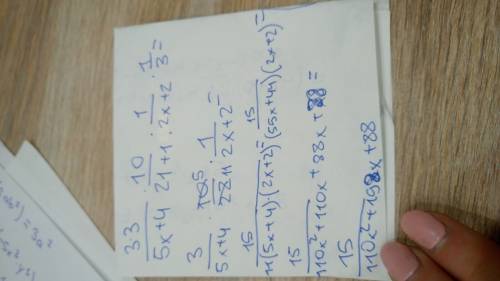 33/(5x+4) · 10/(21+1) · 1/(2x+2) · 1/3 =
3/(5x+4) · 5/11 · 1/(2x+2) =
15/(11(5x+4)·(2x+2)) = 15/((55x+44)(2x+2)) =
15/(110x²+110x+88x+88) =
15/(110x²+198x+88)
) = 3a²